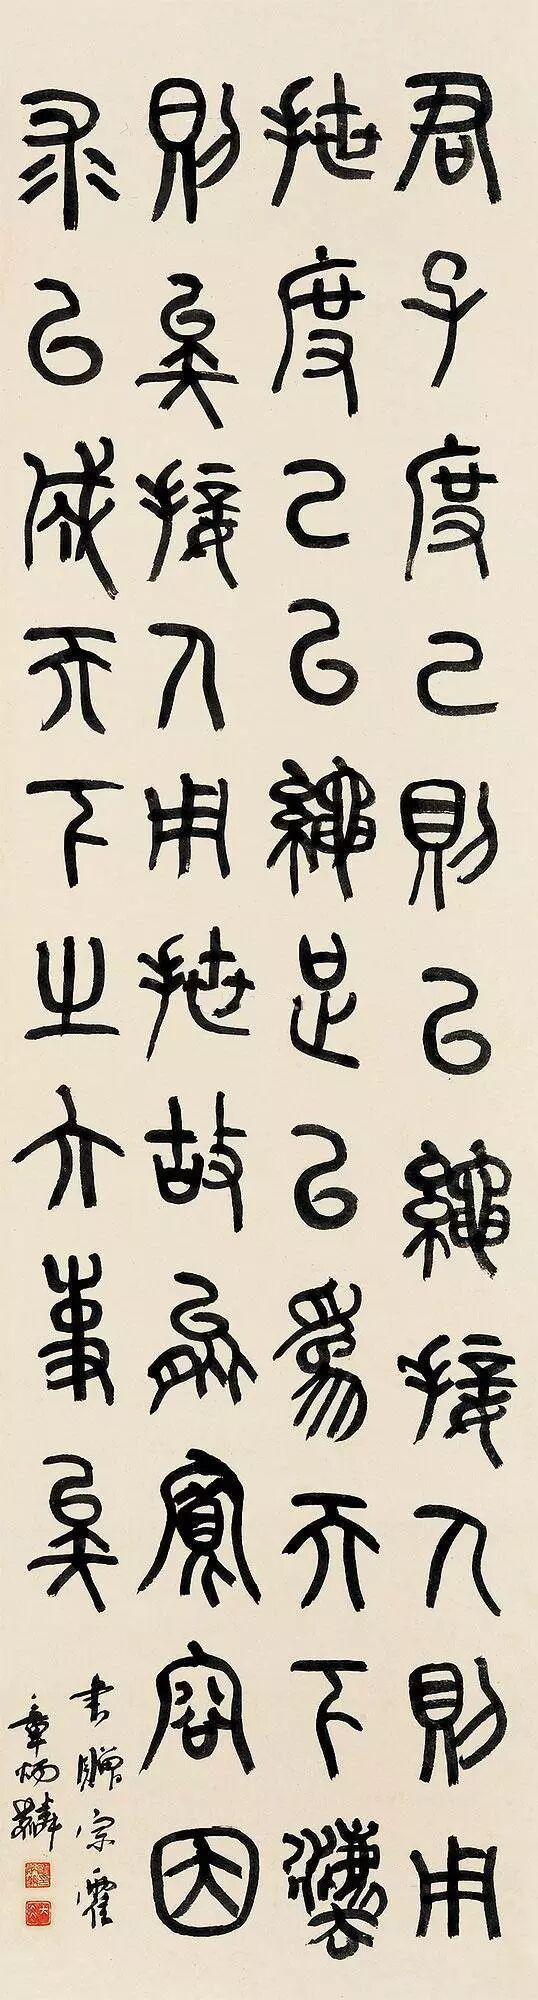 君子度己則以繩接人則用
抴度己以繩足以爲天下灋
則矣接人用抴故能寬容因
求以成天下之大事矣
書贈宗霍
章炳麟